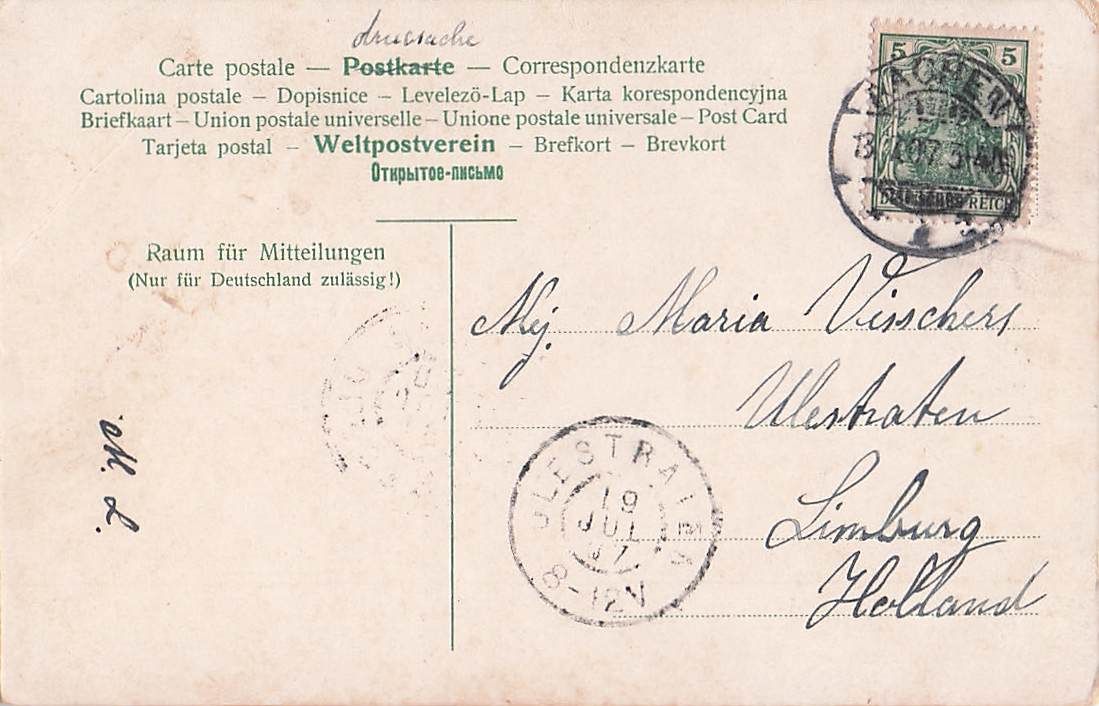 drucsache
Carte postale — Postkarte — Correspondenzkarte
Cartolina postale – Dopisnice – Levelező-Lap – Karta korespondencyjna
Briefkaart – Union postale universelle – Unione postale universale – Post Card
Tarjeta postal – Weltpostverein – Brefkort – Brevkort
Открытое-письмо
5 5
AACHEN
DEUTSCHES REICH
Raum für Mitteilungen
(Nur für Deutschland zulässig!)
Mej. Maria Visschers
Ulestraten
Limburg
Holland
M. L.
ULESTRATEN
19
JUL
07
8-12V